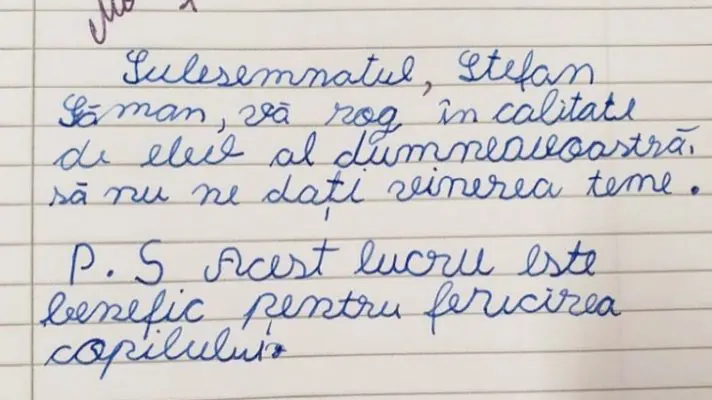 Subsemnatul, Ștefan
Săman, vă rog în calitate
de elev al dumneavoastră,
să nu ne dați vinerea teme.
P.S Acest lucru este
benefic pentru fericirea
copilului.